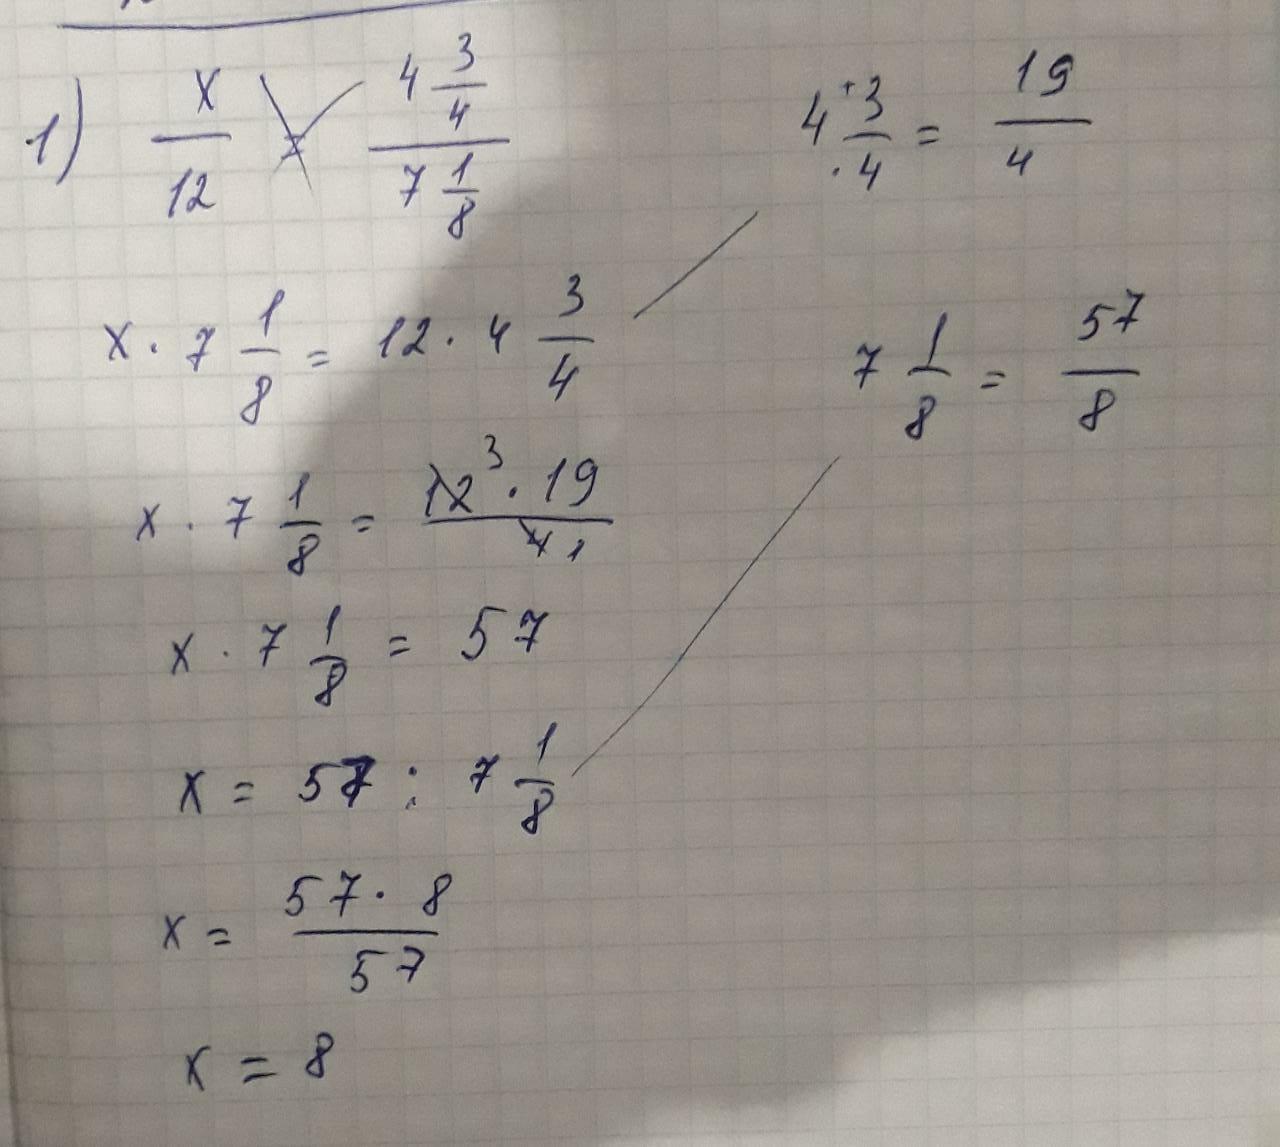 1) x/12 = 4 3/4 / 7 1/8
4 3/4 = 19/4
x · 7 1/8 = 12 · 4 3/4
7 1/8 = 57/8
x · 7 1/8 = 12 3 · 19 / 4 1
x · 7 1/8 = 57
x = 57 : 7 1/8
x = 57 · 8 / 57
x = 8